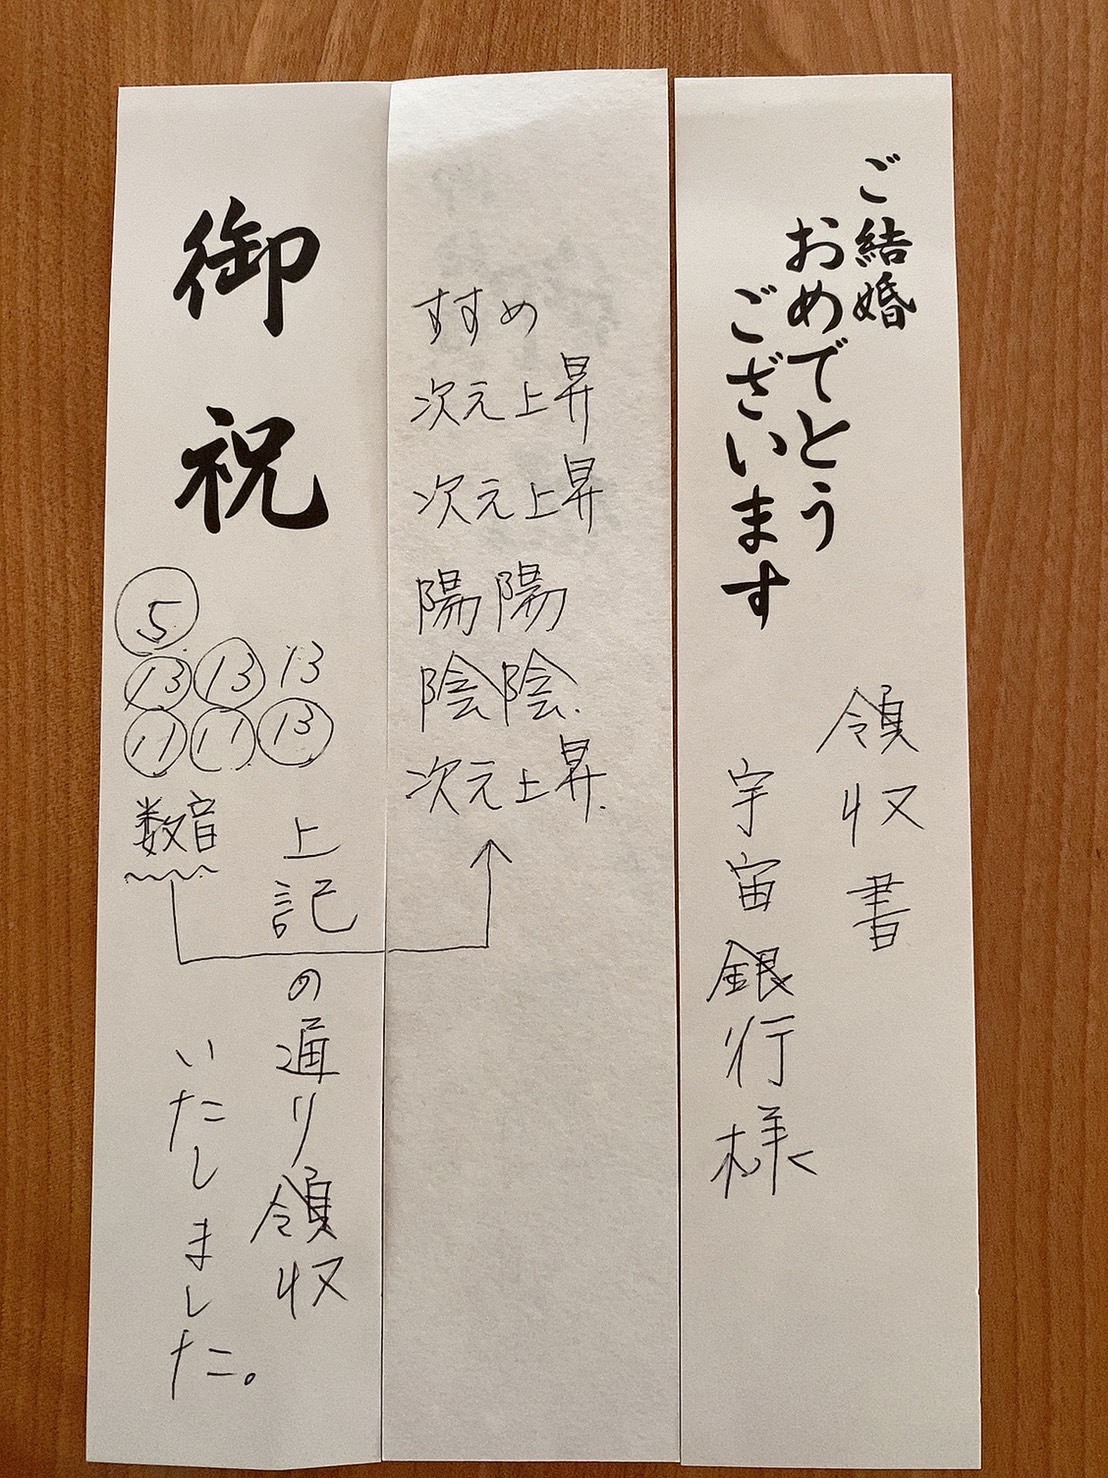 ご結婚
おめでとう
ございます
領収書
宇宙銀行様
すすめ
次元上昇
次元上昇
陽陽
陰陰.
次元上昇.
御祝
5
13 13 13
11 11 13
数音
上記の通り領収
いたしました。